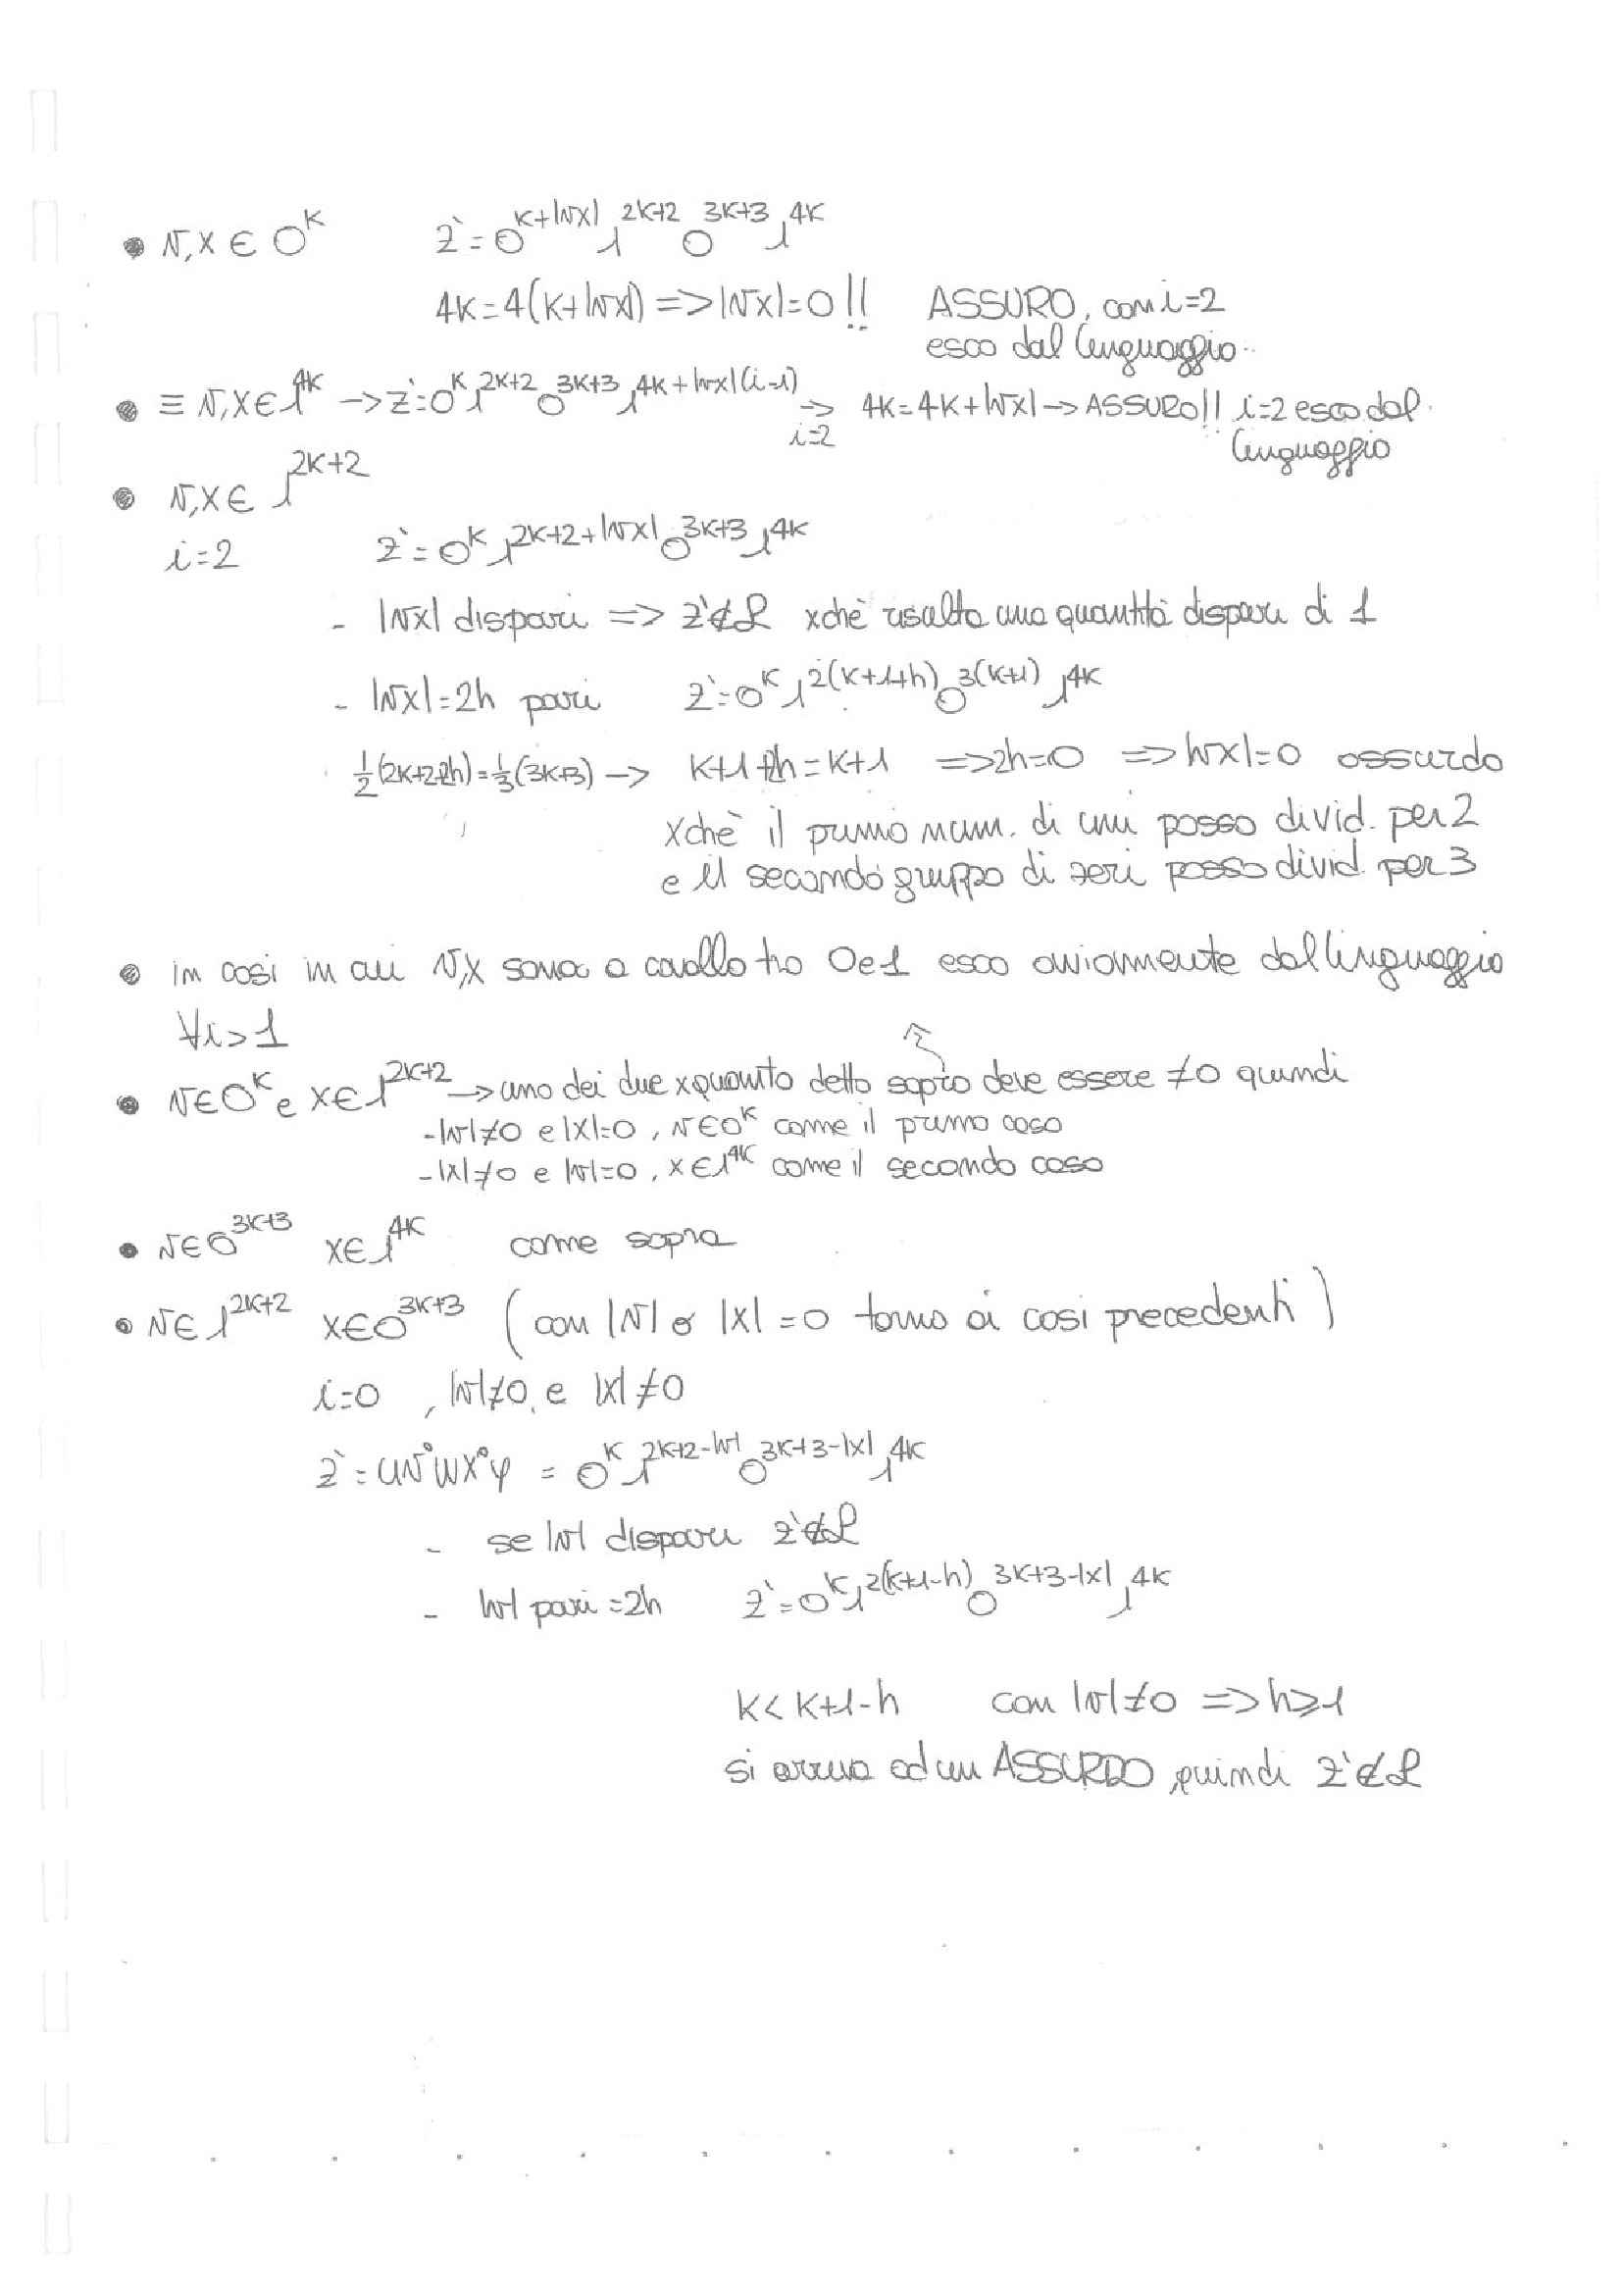 • v,x ∈ 0^K z' = 0^{K+|vx|} 1^{2K+2} 0^{3K+3} 1^{4K}
4K = 4(K+|vx|) => |vx| = 0 !! ASSURO, con i=2
esco dal linguaggio.
• ≡ v,x ∈ 1^{4K} -> z' = 0^K 1^{2K+2} 0^{3K+3} 1^{4K+|vx|(i-1)} -> i=2 4K = 4K+|vx| -> ASSURO!! i=2 esco dal
linguaggio
• v,x ∈ 1^{2K+2}
i=2 z' = 0^K 1^{2K+2+|vx|} 0^{3K+3} 1^{4K}
- |vx| dispari => z' ∉ L xchè risulta una quantità dispari di 1
- |vx| = 2h pari z' = 0^K 1^{2(K+1+h)} 0^{3(K+1)} 1^{4K}
1/2 (2K+2+2h) = 1/3 (3K+3) -> K+1+2h = K+1 => 2h=0 => |vx|=0 assurdo
xchè il primo num. di uni posso divid. per 2
e il secondo gruppo di zeri posso divid. per 3
• in casi in cui v,x sono a cavallo tra 0 e 1 esco ovviamente dal linguaggio
∀i>1
• v ∈ 0^K e x ∈ 1^{2K+2} -> uno dei due x quanto detto sopra deve essere ≠0 quindi
- |v|≠0 e |x|=0, v ∈ 0^K come il primo caso
- |x|≠0 e |v|=0, x ∈ 1^{4K} come il secondo caso
• v ∈ 0^{3K+3} x ∈ 1^{4K} come sopra
• v ∈ 1^{2K+2} x ∈ 0^{3K+3} (con |v| o |x| = 0 torno ai casi precedenti)
i=0, |v|≠0, e |x|≠0
z' = uv^0wx^0y = 0^K 1^{2K+2-|v|} 0^{3K+3-|x|} 1^{4K}
- se |v| dispari z' ∉ L
- |v| pari = 2h z' = 0^K 1^{2(K+1-h)} 0^{3K+3-|x|} 1^{4K}
K < K+1-h con |v|≠0 => h≥1
si arriva ad un ASSURDO, quindi z' ∉ L